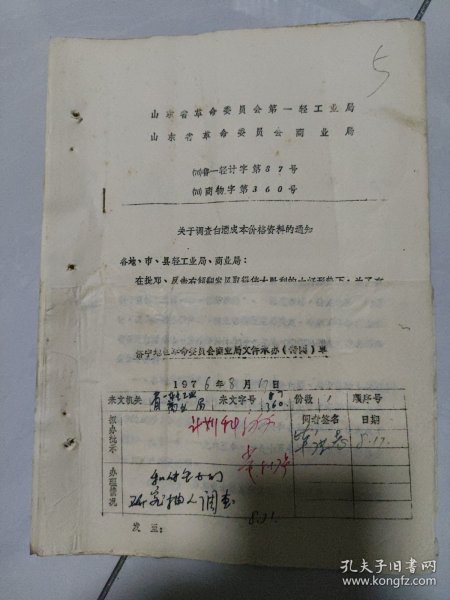 5
山东省革命委员会第一轻工业局
山东省革命委员会商业局
鲁一轻计字第87号
商物字第360号
关于调查白酒成本价格资料的通知
各地、市、县轻工业局、商业局:
在批邓、反击右倾翻案风取得伟大胜利的大好形势下,为了
济宁地区革命委员会商业局文件承办(传阅)单
1976年8月17日
来文机关
来文字号 87 360
份数 1
顺序号
拟办批示
计划科
阅者签名 日期
8.17.
办理情况
研究抽人调查
8.21.
发至:
孔夫子旧书网
www.kongfz.com